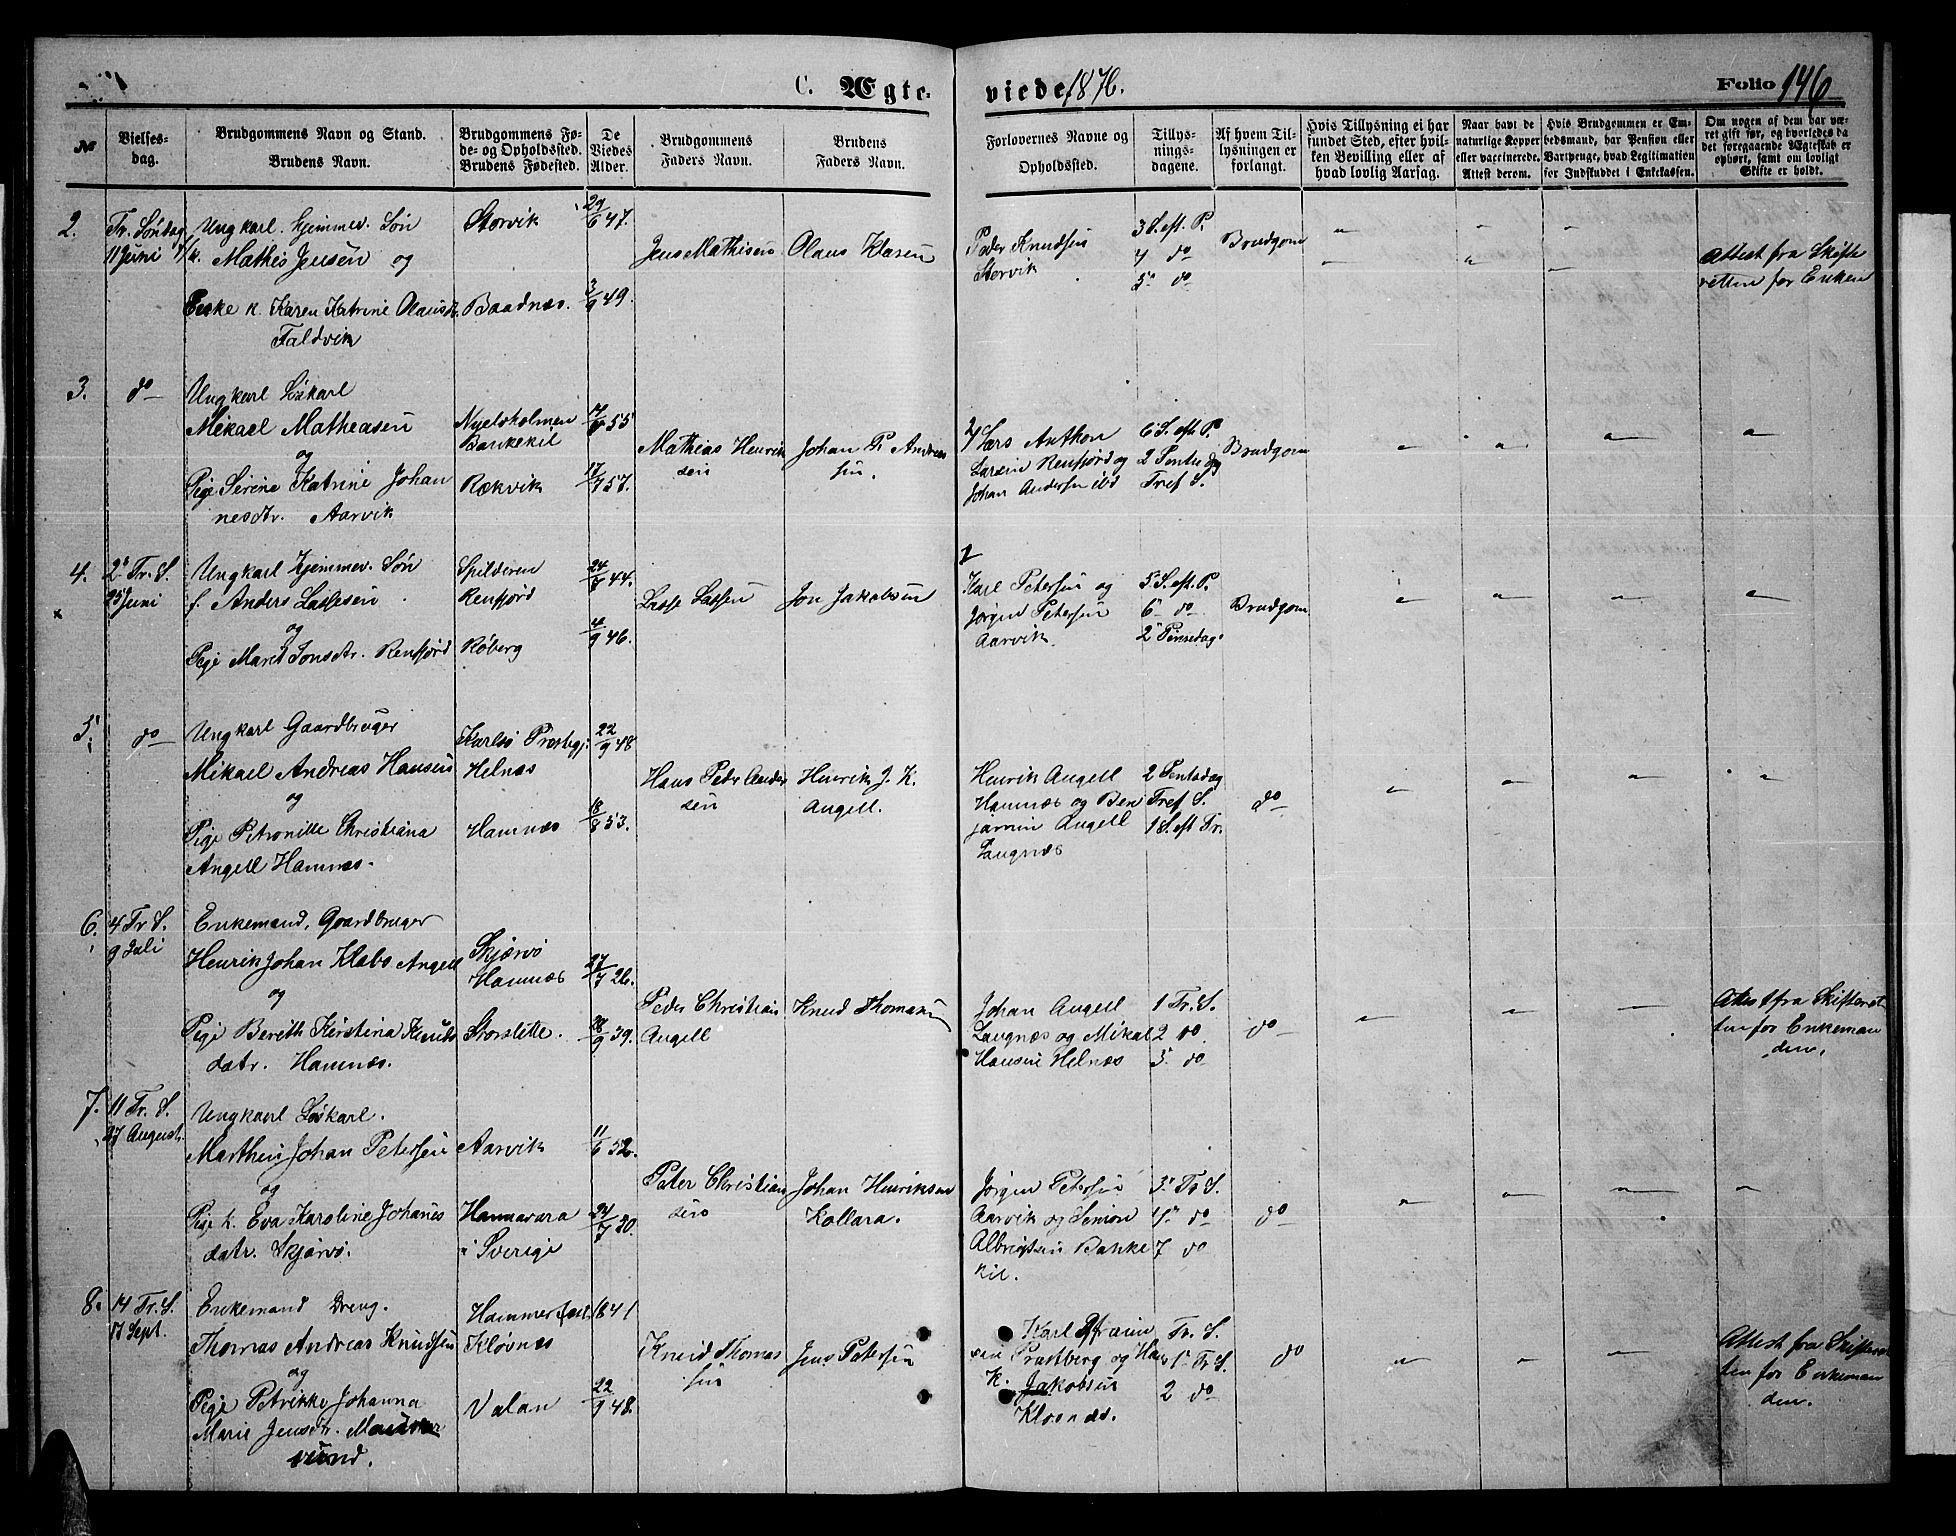 C. Ægte-
viede 1876.
Folio 146
№
Vielses-
dag.
Brudgommens Navn og Stand.
Brudens Navn.
Brudgommens Fø-
de- og Opholdssted.
Brudens Fødested.
De
Viedes
Alder.
Brudgommens
Faders Navn.
Brudens
Faders Navn.
Forlovernes Navne og
Opholdssted.
Tillys-
nings-
dagene.
Af hvem Til-
lysningen er
forlangt.
Hvis Tillysning ei har
fundet Sted, efter hvil-
ken Bevilling eller af
hvad lovlig Aarsag.
Naar havt de
naturlige Kopper
eller vaccinerede.
Attest derom.
Hvis Brudgommen er Em-
bedsmand, har Pension eller
Vartpenge, hvad Legitimation
for Indskuddet i Enkekassen.
Om nogen af dem har væ-
ret gift før, og hvorledes da
det foregaaende Ægteskab er
ophørt, samt om lovligt
Skifte er holdt.
2.
Tr. Søndag
11 Juni
Ungkarl. Hjemmev. Søn
k. Mathis Jensen og
Enke k. Karen Katrine Olausdr.
Faldvik
Storvik
Baadnæs.
29/6 47.
3/9 49.
Jens Mathisen
Olaus Klasen
Peder Knudsen
Storvik
3 S. eft. P.
4 do
5 do
Brudgom
Attest fra Skifte
retten for Enken
3.
do
Ungkarl Løskarl
Mikael Matheasen
og
Pige Serine Katrine Johan
nesdtr. Aarvik
Nyelvholmen
Bankekil
Rækvik
17/7 57.
Mathias Henrik
sen
Johan P. Andreas
sen.
Lars Anthon
Larsen Renfjord og
Johan Andersen ibd
6 S. eft. P.
2 Pentedg
Tref S.
Brudgom
4.
2 Tr. S.
25 Juni
Ungkarl Hjemmev. Søn
f. Anders Lassesen
og
Pige Marit Jonsdtr. Reinfjord
Spilderen
Renfjord
Røberg
44.
46.
Lasse Lassen
Jon Jakobsen
Karl Petersen og
Jørgen Petersen
Aarvik
5 S. eft. P.
6 do
2 Pinsedag.
Brudgom
5.
do
Ungkarl Gaardbruger
Mikael Andreas Hansen
og
Pige Petronille Christiana
Angell Hamnæs.
Karlsø Præstegj.
Helnæs
Hamnæs
22/9 48
18/8 53.
Hans Peder Ander
sen
Henrik J. K.
Angell.
Henrik Angell
Hamnæs og Ben
jamin Angell
Laugnæs
2 Pentedag
Tref S.
1 S. eft Tr.
do
6.
4 Tr. S.
9 Juli
Enkemand, Gaardbruger
Henrik Johan Klabo Angell
og
Pige Bereth Kirstina Knuds
datr. Hamnæs.
Skjærvø
Hamnæs
Storslette.
27/7 26.
28/9 39.
Peder Christian
Angell
Knud Thomasen
Johan Angell
Laugnæs og Mikal
Hansen Helnæs
1 Tr. S.
2 do
3 do
do
Attest fra Skifteret
ten for Enkeman
den.
7.
11 Tr. S.
27 August.
Ungkarl Løskarl.
Marthin Johan Petersen
og
Pige k. Eva Karoline Johanes
datr. Skjærvø.
Aarvik
Hannavara
i Sverige
11/6 52.
24/7 30.
Peter Christian
sen
Johan Henriksen
Kollara.
Jørgen Petersen
Aarvik og Simon
Albrigtsen Banke
kil.
3 Tr S.
4 do
7 do
do
8.
14 Tr. S.
17 Sept.
Enkemand Dreng.
Thomas Andreas Knudsen
og
Pige Petrikke Johanna
Marie Jensdtr.
sund.
Hammerfest
Kløvnæs
Valan
1841
22/9 48.
Knud Thomas
sen
Jens Petersen
Karl Efraim
sen Præstberg og Hans
K. Jakobsen
Klovnæs.
Tr. S.
1 Tr S.
2 do
do
Attest fra Skifteret
ten for Enkeman
den.